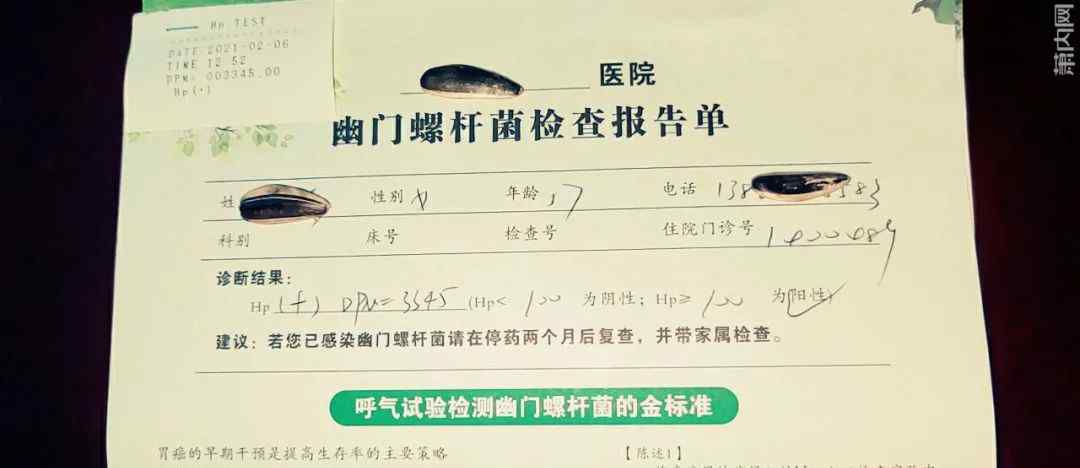 Hp TEST
DATE 2021-02-06
TIME 12 52
DPM: 003345.00
医院
幽门螺杆菌检查报告单
姓 性别 年龄 电话 138 583
科别 床号 检查号 住院门诊号
诊断结果:
Hp (+) DPM=3345 (Hp< 100 为阴性; Hp≥ 100 为阳性)
建议: 若您已感染幽门螺杆菌请在停药两个月后复查, 并带家属检查。
呼气试验检测幽门螺杆菌的金标准
胃癌的早期干预是提高生存率的主要策略
【陈述1】
萧内网